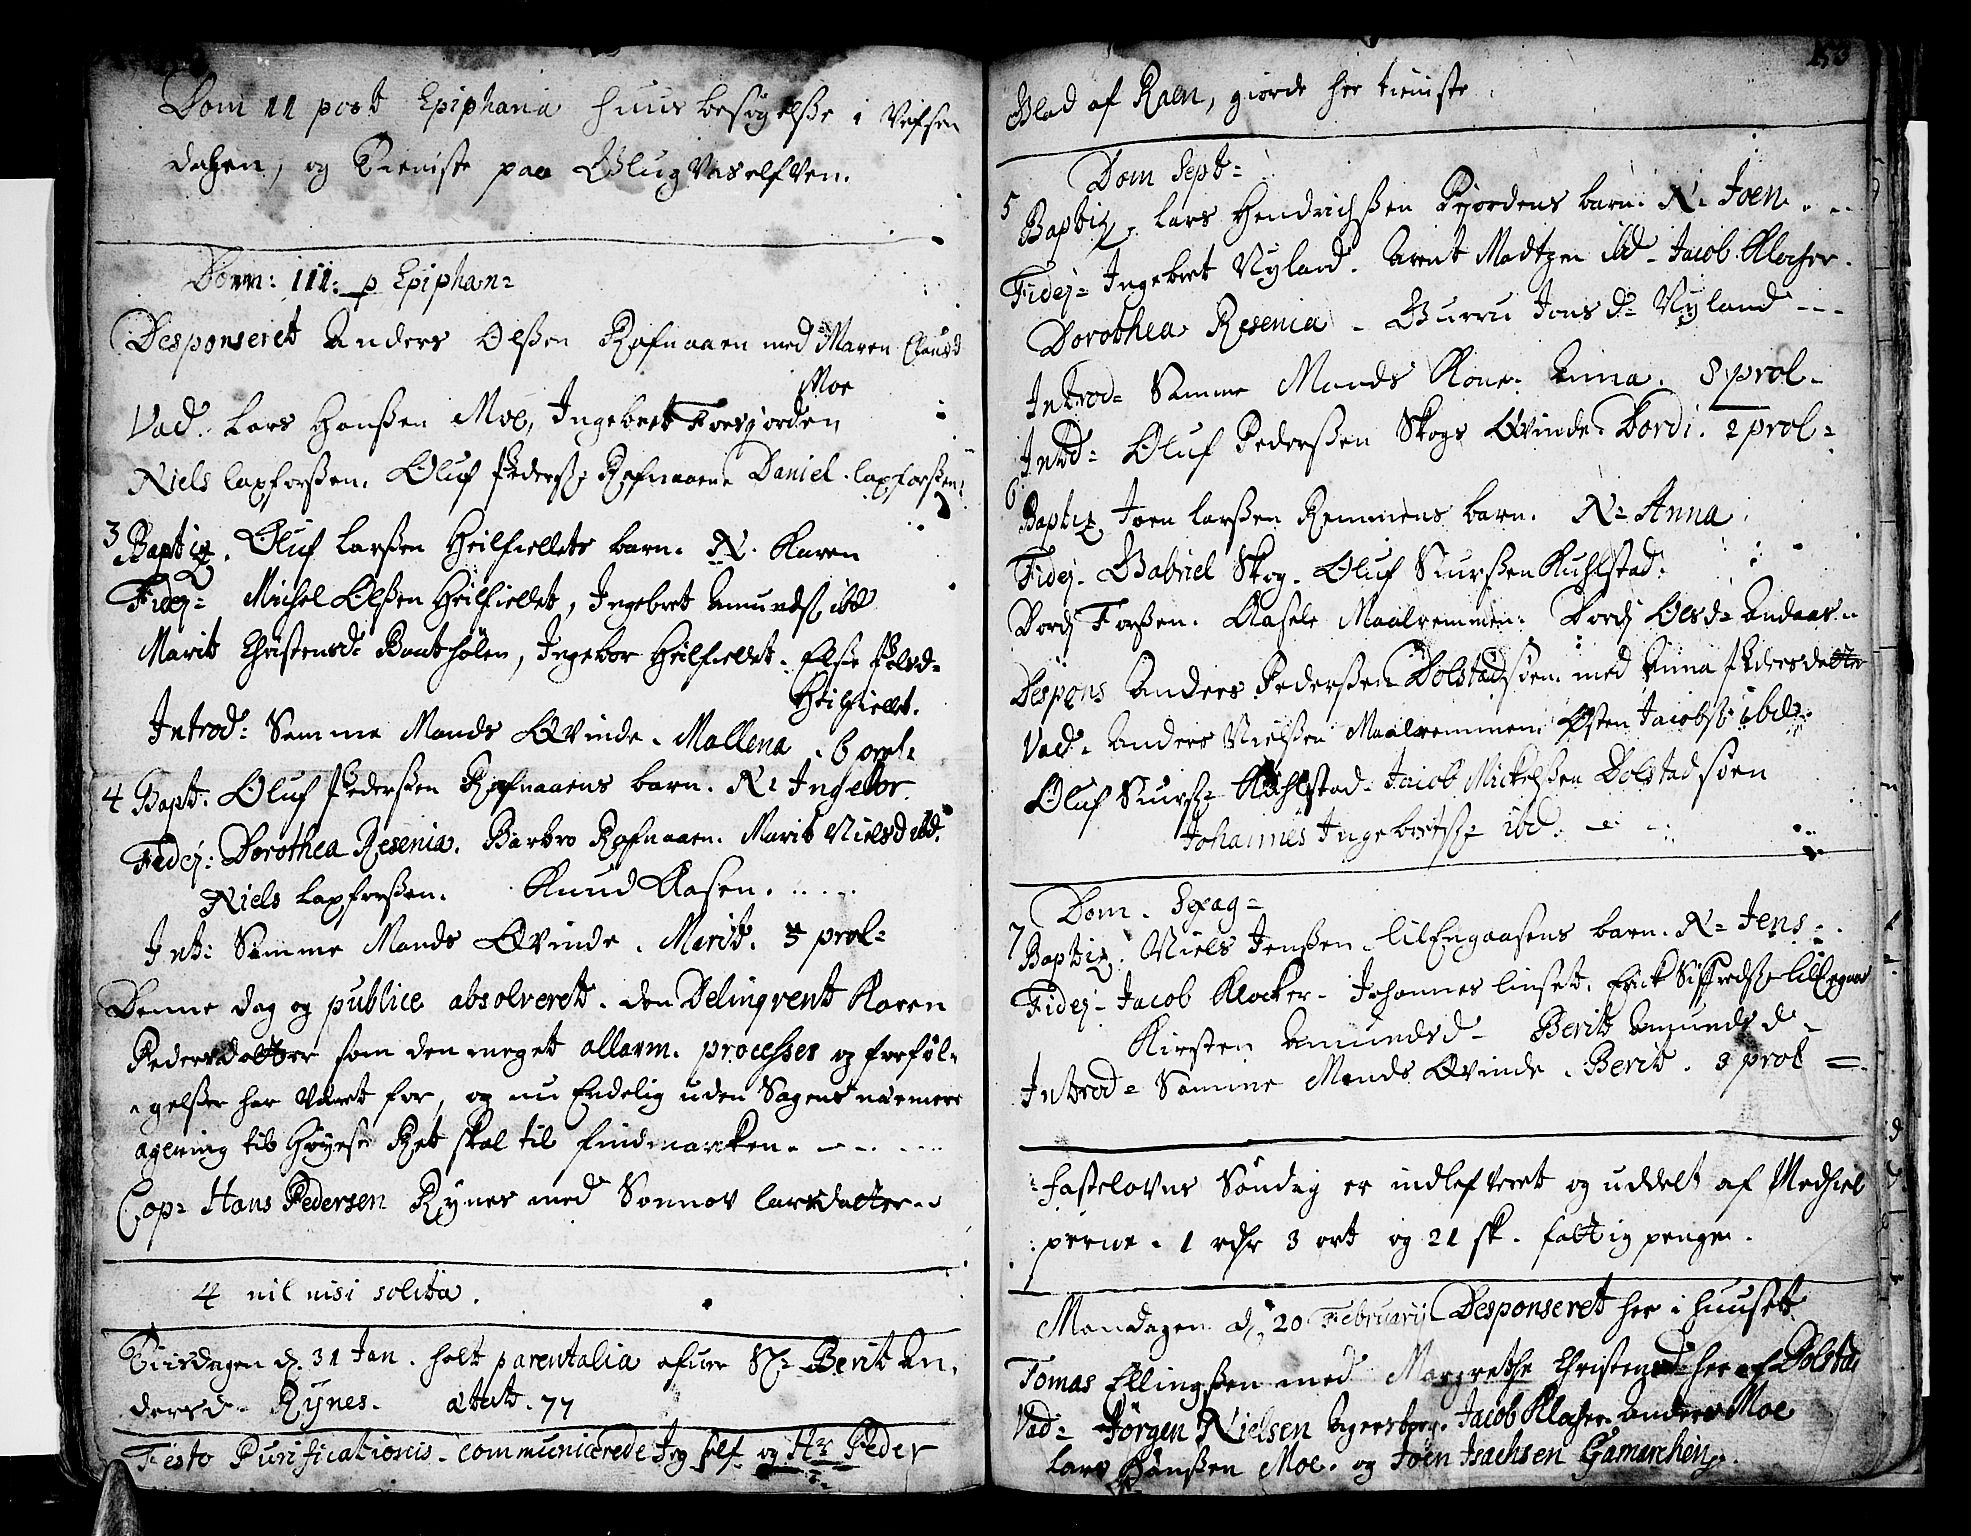 Dom 11 post Epiphania huus besøgelsse i Vefsen
dahlen, og Tieniste paa Glugvaselfven.
Dom: 111: p Epiphan=
Desponseret Anders Olssen Røfnaaen med Maren Clausd
Moe
Vad. Lars Hanssen Moe, Ingebret Forsjorden
Niels laxforssen. Oluf Pederss Røfnaaen. Daniel laxforssen.
3 Baptiz. Oluf Larssen Heilfiellets barn. N. Karen
Fidej= Michel Olssen Heilfiellet, Ingebret Amunds. ibd
Marit Christensd= Bauthølen, Ingebor Heilfiellet. Else Pedersd=
Heilfiellet.
Introd: Samme Mands Qvinde. Mallena. 6 prol=
4 Bapt. Oluf Pederssen Røfnaaens barn. N= Ingebor
Fidej: Dorothea Resenia. Barbro Røfnaaen. Marit Nielsd ibd.
Niels Laxforssen. Knud Aasen.
Int: Samme Mands Qvinde. Marit. 5 prol=
Denne dag og publice absolveret. den Delinqvent Karen
Pedersdatter som den meget allarm. processer og forføl-
gelsser har Været for, og nu Endelig uden Sagens nærmere
agening til Høyeste Ret skal til Findmarcken.
Cop= Hans Pedersen Rynes med Sønnov larsdatter.
4 nil nisi solita.
Tiisdagen d. 31 Jan. holt parentalia ofver Sl= Berit An-
dersd. Rynes. ætat. 77
Festo Purificationis. communicerede Jeg self og Hr Peder
153
Blad af Raen, giorde her tieniste.
Dom Sept=
5 Baptiz. Lars Hendrichssen Fjordens barn. N. Joen.
Fidej= Ingebret Nyland. Arent Madtzen ibd. Jacob Klocker.
Dorothea Resenia. Gurru Jons d= Nyland
Introd= Samme Mands Kone. Anna. 8 prol.
Introd= Oluf Pederssen Skogs Qvinde. Dordi. 2 prol=
6 Baptiz Joen larssen Remmens barn. N= Anna.
Fidej. Gabriel Skog. Oluf Siurssen Kuhlstad.
Dordj Forssen. Aasele Maalremmen. Dordj Olsd= Andaas.
Despons Anders Pederssen Dolstadsiøen. med Anna Pedersdatter
Vad. Anders Nielssen Maalremmen. Østen Jacobs. ibd.
Oluf Siurss= Kuhlstad. Jacob Mickelssen Dolstadsiøen
Johannes Ingebretss= ibd.
Dom. Sexag=
7 Baptiz. Niels Jenssen. lilEngaasens barn. N= Jens.
Fidej. Jacob Klocker. Johannes linset. Erick Siffredss= lilEngaas
Kirsten Amundsd. Berit Amundsd.
Introd= Samme Mands Qvinde. Berit. 3 prol
Fastelavns Søndag er indlefveret og uddelt af Medhiel
perne. 1 rdr 3 ort og 21 sk. fattig penge.
Mandagen d. 20 Februarij Desponseret her i huuset
Tomas Ellingssen med Margrethe Christensd= her af Dolstad
Vad= Jørgen Nielsen Agersborg. Jacob Klocker. Anders Moe
Lars Hanssen Moe. og Joen Isachsen